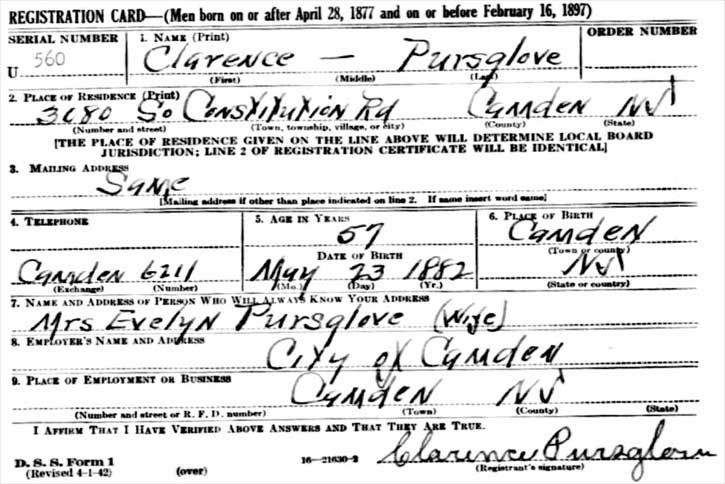 REGISTRATION CARD—(Men born on or after April 28, 1877 and on or before February 16, 1897)
SERIAL NUMBER 1. NAME (Print) ORDER NUMBER
U 560 Clarence — Pursglove
(First) (Middle) (Last)
2. PLACE OF RESIDENCE (Print)
3680 So Constitution Rd Camden NJ
(Number and street) (Town, township, village, or city) (County) (State)
[THE PLACE OF RESIDENCE GIVEN ON THE LINE ABOVE WILL DETERMINE LOCAL BOARD
JURISDICTION; LINE 2 OF REGISTRATION CERTIFICATE WILL BE IDENTICAL]
3. MAILING ADDRESS
Same
[Mailing address if other than place indicated on line 2. If same insert word same]
4. TELEPHONE 5. AGE IN YEARS 6. PLACE OF BIRTH
57 Camden
DATE OF BIRTH (Town or county)
Camden 6211 May 23 1882 NJ
(Exchange) (Number) (Mo.) (Day) (Yr.) (State or country)
7. NAME AND ADDRESS OF PERSON WHO WILL ALWAYS KNOW YOUR ADDRESS
Mrs Evelyn Pursglove (Wife)
8. EMPLOYER'S NAME AND ADDRESS
City of Camden
9. PLACE OF EMPLOYMENT OR BUSINESS
Camden NJ
(Number and street or R. F. D. number) (Town) (County) (State)
I AFFIRM THAT I HAVE VERIFIED ABOVE ANSWERS AND THAT THEY ARE TRUE.
D. S. S. Form 1 16—21630-2 Clarence Pursglove
(Revised 4-1-42) (over) (Registrant's signature)